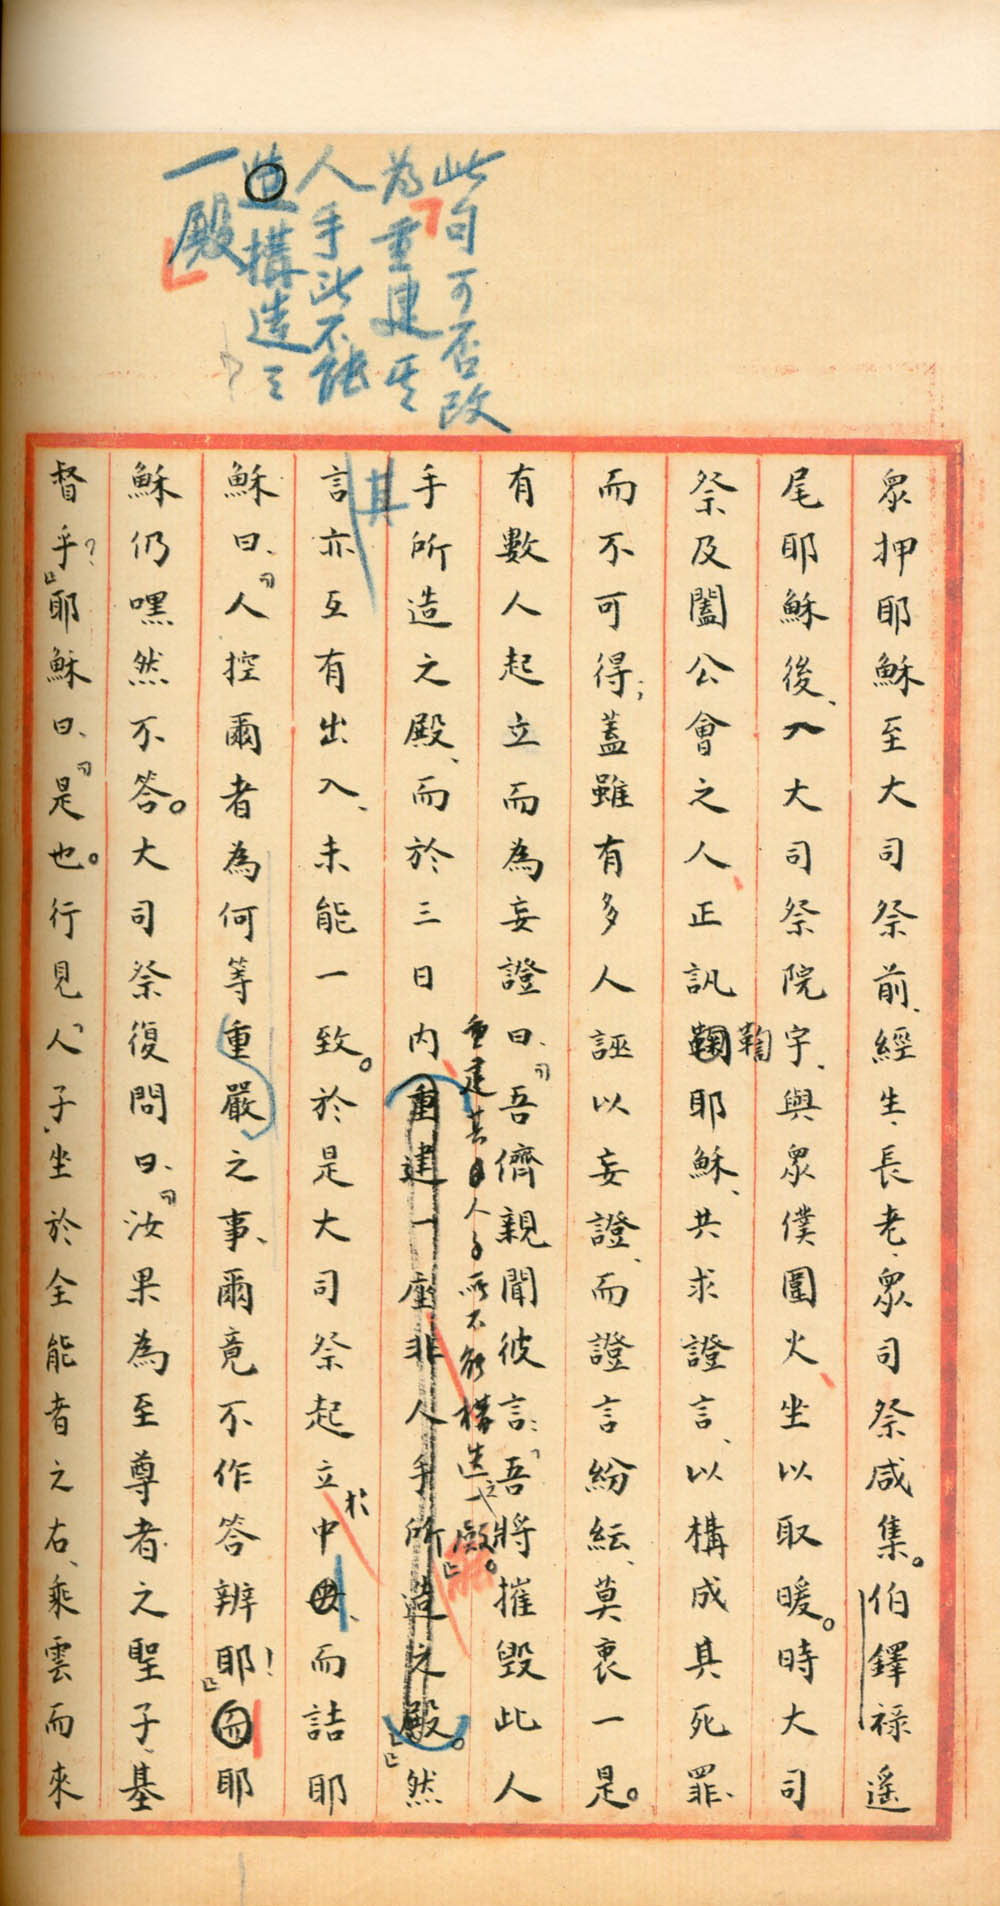 此句可否改
為「重建其
人手所不能
造構造之
一殿」
眾押耶穌至大司祭前、經生、長老、眾司祭咸集。伯鐸祿遥
尾耶穌後、入大司祭院宇、與眾僕圍火、坐以取暖。時大司
祭及闔公會之人、正訊鞫耶穌、共求證言、以構成其死罪、
鞫
而不可得；蓋雖有多人誣以妄證、而證言紛紜、莫衷一是。
有數人起立而為妄證曰、「吾儕親聞彼言：『吾將摧毀此人
重建其人手所不能構造之一殿。
手所造之殿、而於三日內、重建一座非人手所造之殿。』」然
其
言亦互有出入、未能一致。於是大司祭起立中毋、而詰耶
於
穌曰、「人控爾者為何等重嚴之事、爾竟不作答辨耶！」而耶
穌仍嘿然不答。大司祭復問曰、「汝果為至尊者之聖子、基
督乎？」耶穌曰、「是也。行見人子、坐於全能者之右、乘雲而來